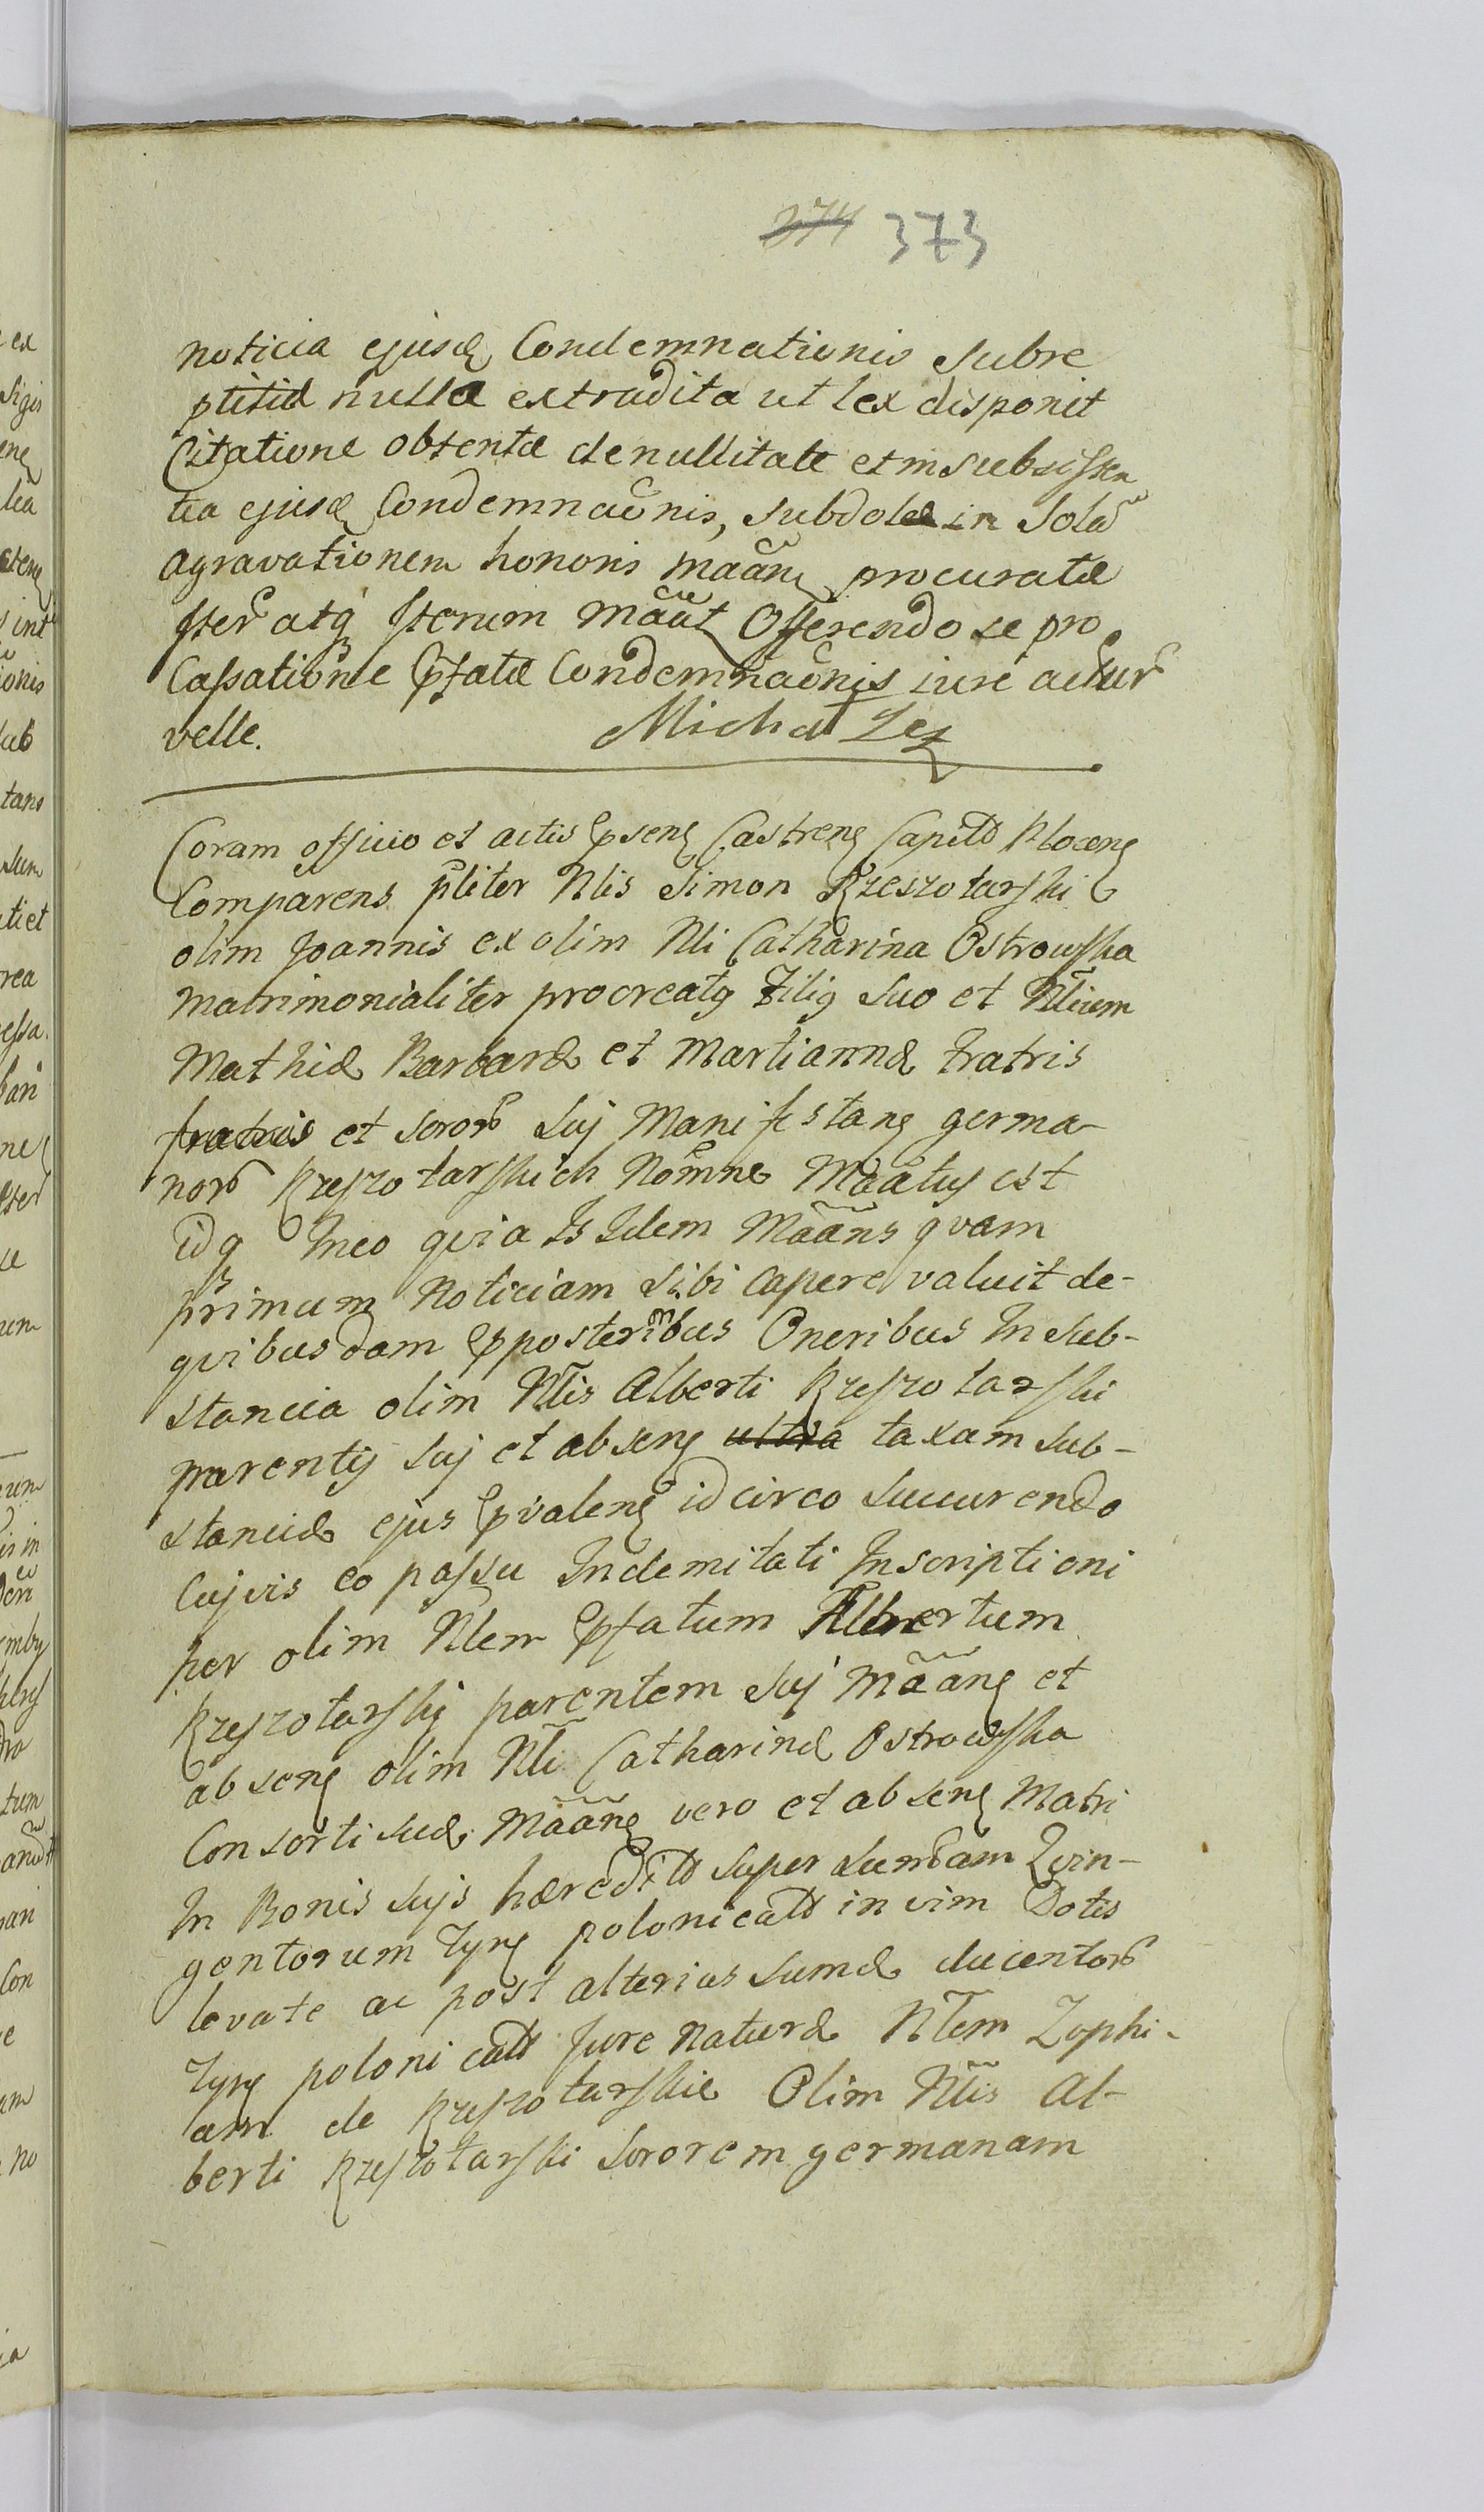 374 373
noticia ejusđ Condemnationis subre
ptitiæ nulla extradita ut lex disponit
Citatione obtentæ de nullitate et insubsisten
tia ejusđ Condemnaõnis, subdole in Solã
agravationem honoris mããñ procuratæ
Iter atq Iterum mããt Offerendo se pro
Cassatione ꝑfatæ Condemnaõnis iure actur
velle. Michał Lez
Coram officio et actis ꝑsenʒ Castrenʒ Capitł Płocenʒ
Comparens ꝑłiter Nłis Simon Rzeszotarski
olim Joannis ex olim Nłi Catharina Ostrowska
matrimonialiter procreatq Filiq suo et Nłium
Mathiæ Barbaræ et Martiannæ fratris
et soror suj Manifestanʒ germa-
nor Rzeszotarskich Nomne Mããtus est
idq Ineo qvia Is Idem Mããns qvam
primum Noticiam sibi capere valuit de-
qvibusdam ꝑposteribus Oneribus In sub-
stancia olim Nłis Alberti Rzeszotarski
parentis suj et absenʒ ultra taxam sub-
stanciæ ejus ꝑvalenʒ idcirco succurendo
Cujvis eo passu Indemitati Inscriptioni
per olim Nłem ꝑfatum Albertum
Rzeszotarskj parentem suj mããnʒ et
absenʒ olim Nłi Catharinæ Ostrowska
Consorti suæ Mããnʒ vero et absenʒ Matri
In Bonis sujs hæreditł super sumam Qvin-
gentorum Tynʒ polonicałł in vim Dotis
levate ac post alterius sumæ ducentor
Tynʒ polonicałł Jure naturæ Nłem Zophi-
am de Rzeszotarskie Olim Nłis Al-
berti Rzeszotarski sororem germanam